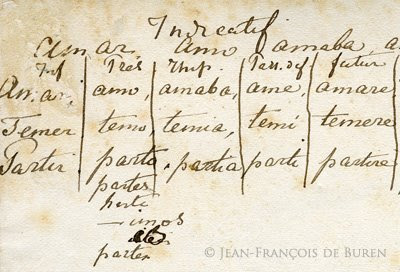 Indicatif
Amar. amo amaba, a
Inf Prés Imp. Pas. def futur
Am.ar. amo, amaba, ame, amare
Temer temo temia, temí temere
Partir parto . partia parti partire
partes
parti
— imos
parten
© Jean-François de Buren